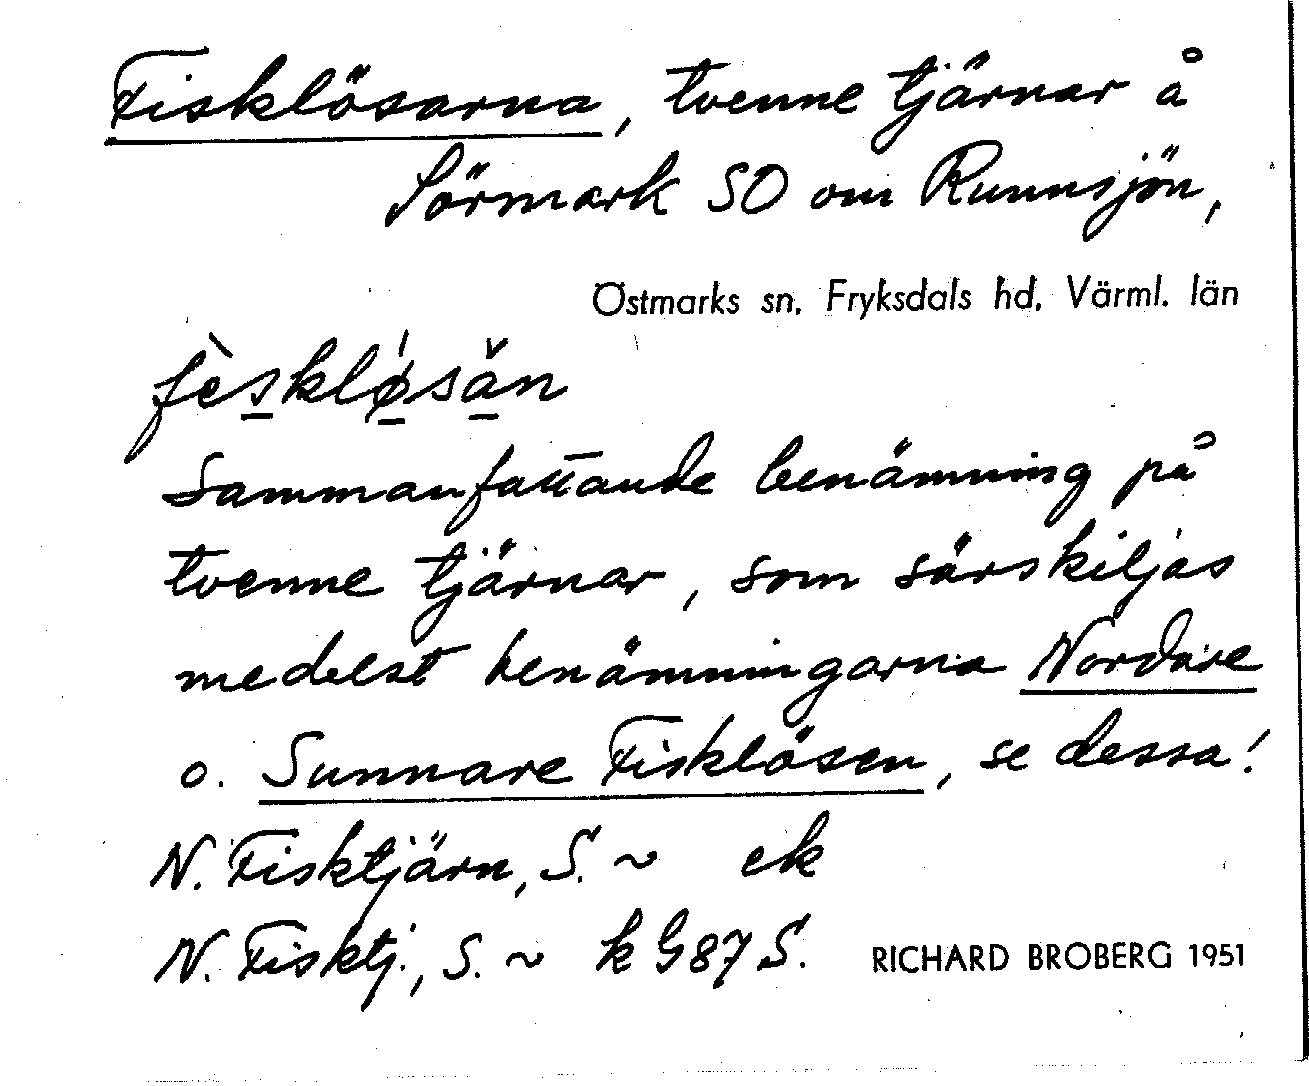 Fisklösarna, tvenne tjärnar å
Sörmark SO om Runnsjön,
Östmarks sn, Fryksdals hd, Värml. län
fèskløsän
Sammanfattande benämning på
tvenne tjärnar, som särskiljas
medelst benämningarna Nordare
o. Sunnare Fisklösen, se dessa!
N. Fisktjärn, S. ~ ek
N. Fisktj., S. ~ k G 87 S.
RICHARD BROBERG 1951